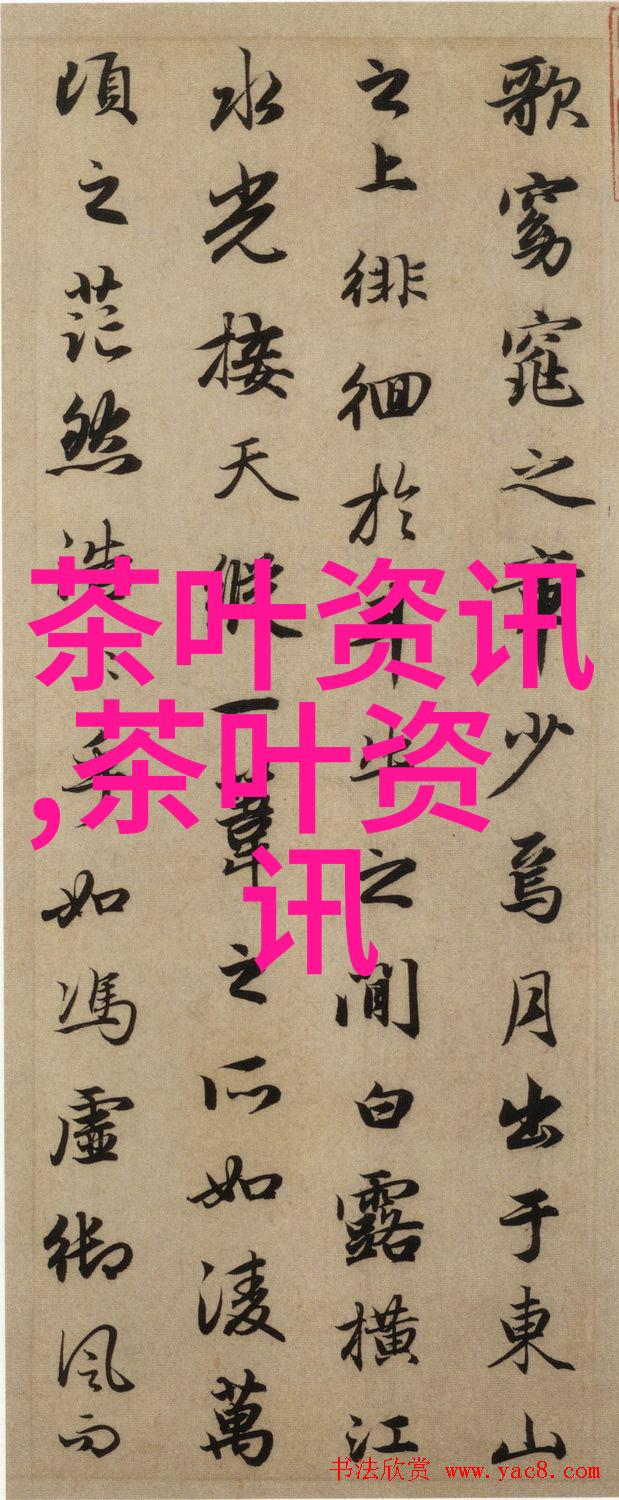 歌窈窕之章少焉月出于東山
之上徘徊於斗牛之間白露橫江
水光接天縱一葦之所如淩萬
頃之茫然浩〻乎如馮虛御風而
茶叶资讯
,茶叶资
讯
书法欣赏 www.yac8.com